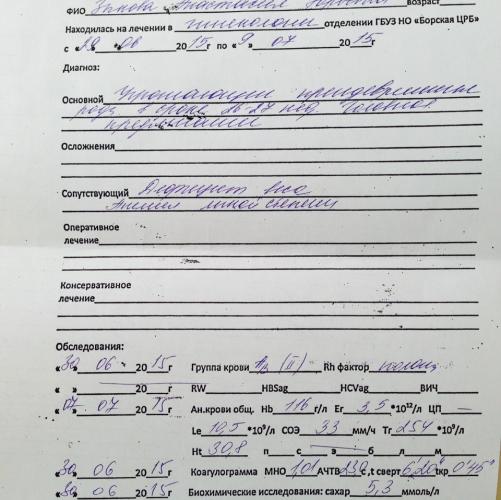 ФИО возраст
Находилась на лечении в гинекологии отделении ГБУЗ НО «Борская ЦРБ»
с «29» «06 2015г по «9 07 2015г
Диагноз:
Основной Угрожающие преждевременные
роды в сроке 26-27 нед. Головное
предлежание
Осложнения
Сопутствующий Дефицит веса
Анемия легкой степени
Оперативное
лечение
Консервативное
лечение
Обследования:
«30» 06 2015г Группа крови A2 (II) Rh фактор полож
« » 20 г RW HBSag HCVag ВИЧ
«07» 07 2015г Ан.крови общ. Hb 116 г/л Er 3,5 *10¹²/л ЦП —
Le 10,5 *10⁹/л СОЭ 33 мм/ч Tr 254 *10⁹/л
Ht 30,8 п с э б л м
«30» 06 2015г Коагулограмма МНО 1,01 АЧТВ с,t сверт 6'20" tкр 0'45"
«30» 06 2015г Биохимические исследования: сахар 5,3 ммоль/л